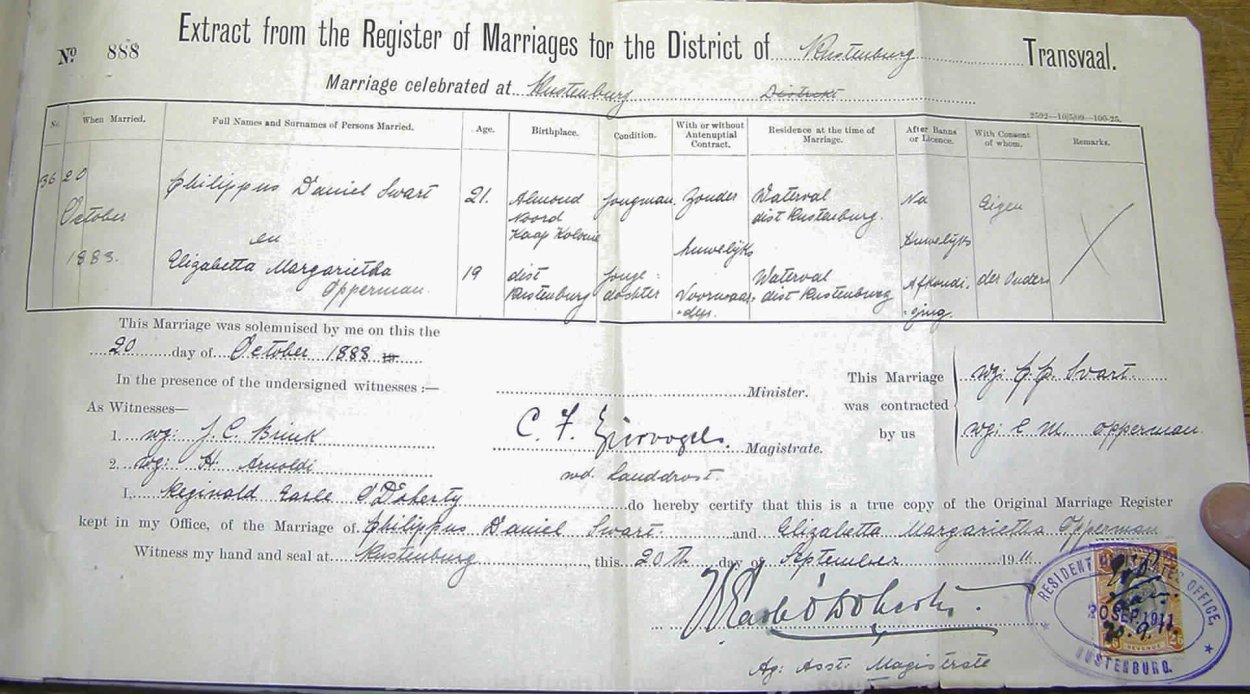 No. 888 Extract from the Register of Marriages for the District of Rustenburg Transvaal.
Marriage celebrated at Rustenburg District
2592—10|5|09—100-25.
No. When Married. Full Names and Surnames of Persons Married. Age. Birthplace. Condition. With or without Antenuptial Contract. Residence at the time of Marriage. After Banns or Licence. With Consent of whom. Remarks.
36 20 October 1883.
Philippus Daniel Swart 21. Almond Noord Kaap Kolonie Jongman Zonder Waterval dist Rustenburg. Na Eigen
en Huwelijks Huwelijks
Elizabetta Margarietha Opperman 19 dist Rustenburg Jonge- dochter Voorwaar- den. Waterval dist Rustenburg Afkondi- ging. der Ouders
This Marriage was solemnised by me on this the
20 day of October 1888
In the presence of the undersigned witnesses :—
Minister.
This Marriage was contracted by us
wg: P. P. Swart
wg: E M. Opperman
As Witnesses—
1. wg: J. C. Brink
C. F. Ziervogels. Magistrate.
2. wg: H. Arnoldi
wd. Landdrost.
I, Reginald Earle O'Doherty do hereby certify that this is a true copy of the Original Marriage Register
kept in my Office, of the Marriage of Philippus Daniel Swart and Elizabetta Margarietha Opperman
Witness my hand and seal at Rustenburg, this 20th day of September 1911
REarle O'Doherty.
Ag: Asst: Magistrate
RESIDENT MAGISTRATES OFFICE,
20 SEP. 1911
20.9.11
REVENUE
RUSTENBURG.